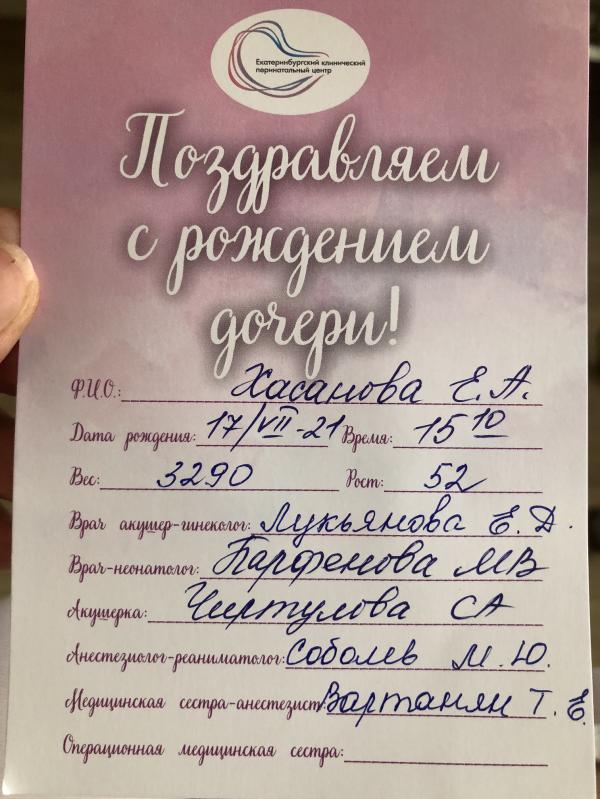 Екатеринбургский клинический
перинатальный центр
Поздравляем
с рождением
дочери!
Ф.И.О.: Хасанова Е. А.
Дата рождения: 17/VII-21 Время: 15 10
Вес: 3290 Рост: 52
Врач акушер-гинеколог: Лукьянова Е. Д.
Врач-неонатолог: Парфенова МВ
Акушерка: Чиртулова СА
Анестезиолог-реаниматолог: Соболев М. Ю.
Медицинская сестра-анестезист: Вартанян Т. Е.
Операционная медицинская сестра: